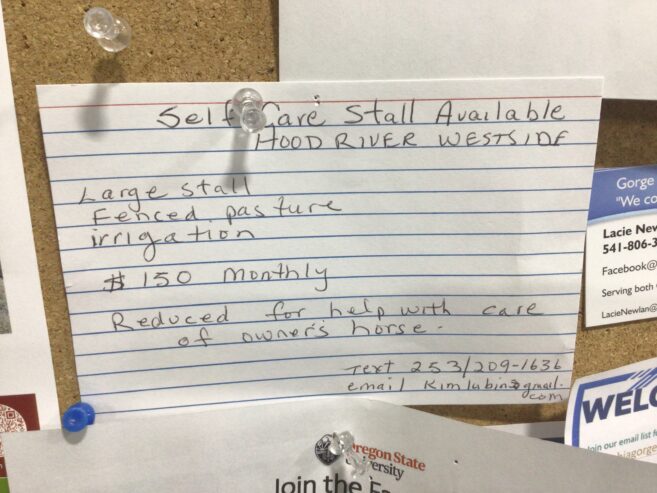 Self Care Stall Available
HOOD RIVER WESTSIDE
Large stall
Fenced pasture
irrigation
$150 monthly
Reduced for help with care
of owner's horse.
Text 253/209-1636
email kimlubin@gmail.
com
Gorge
"We co
Lacie New
541-806-3
Facebook@
Serving both
LacieNewlan@
WELC
Join our email list f
biagorge
Oregon State
University
Join the Fa